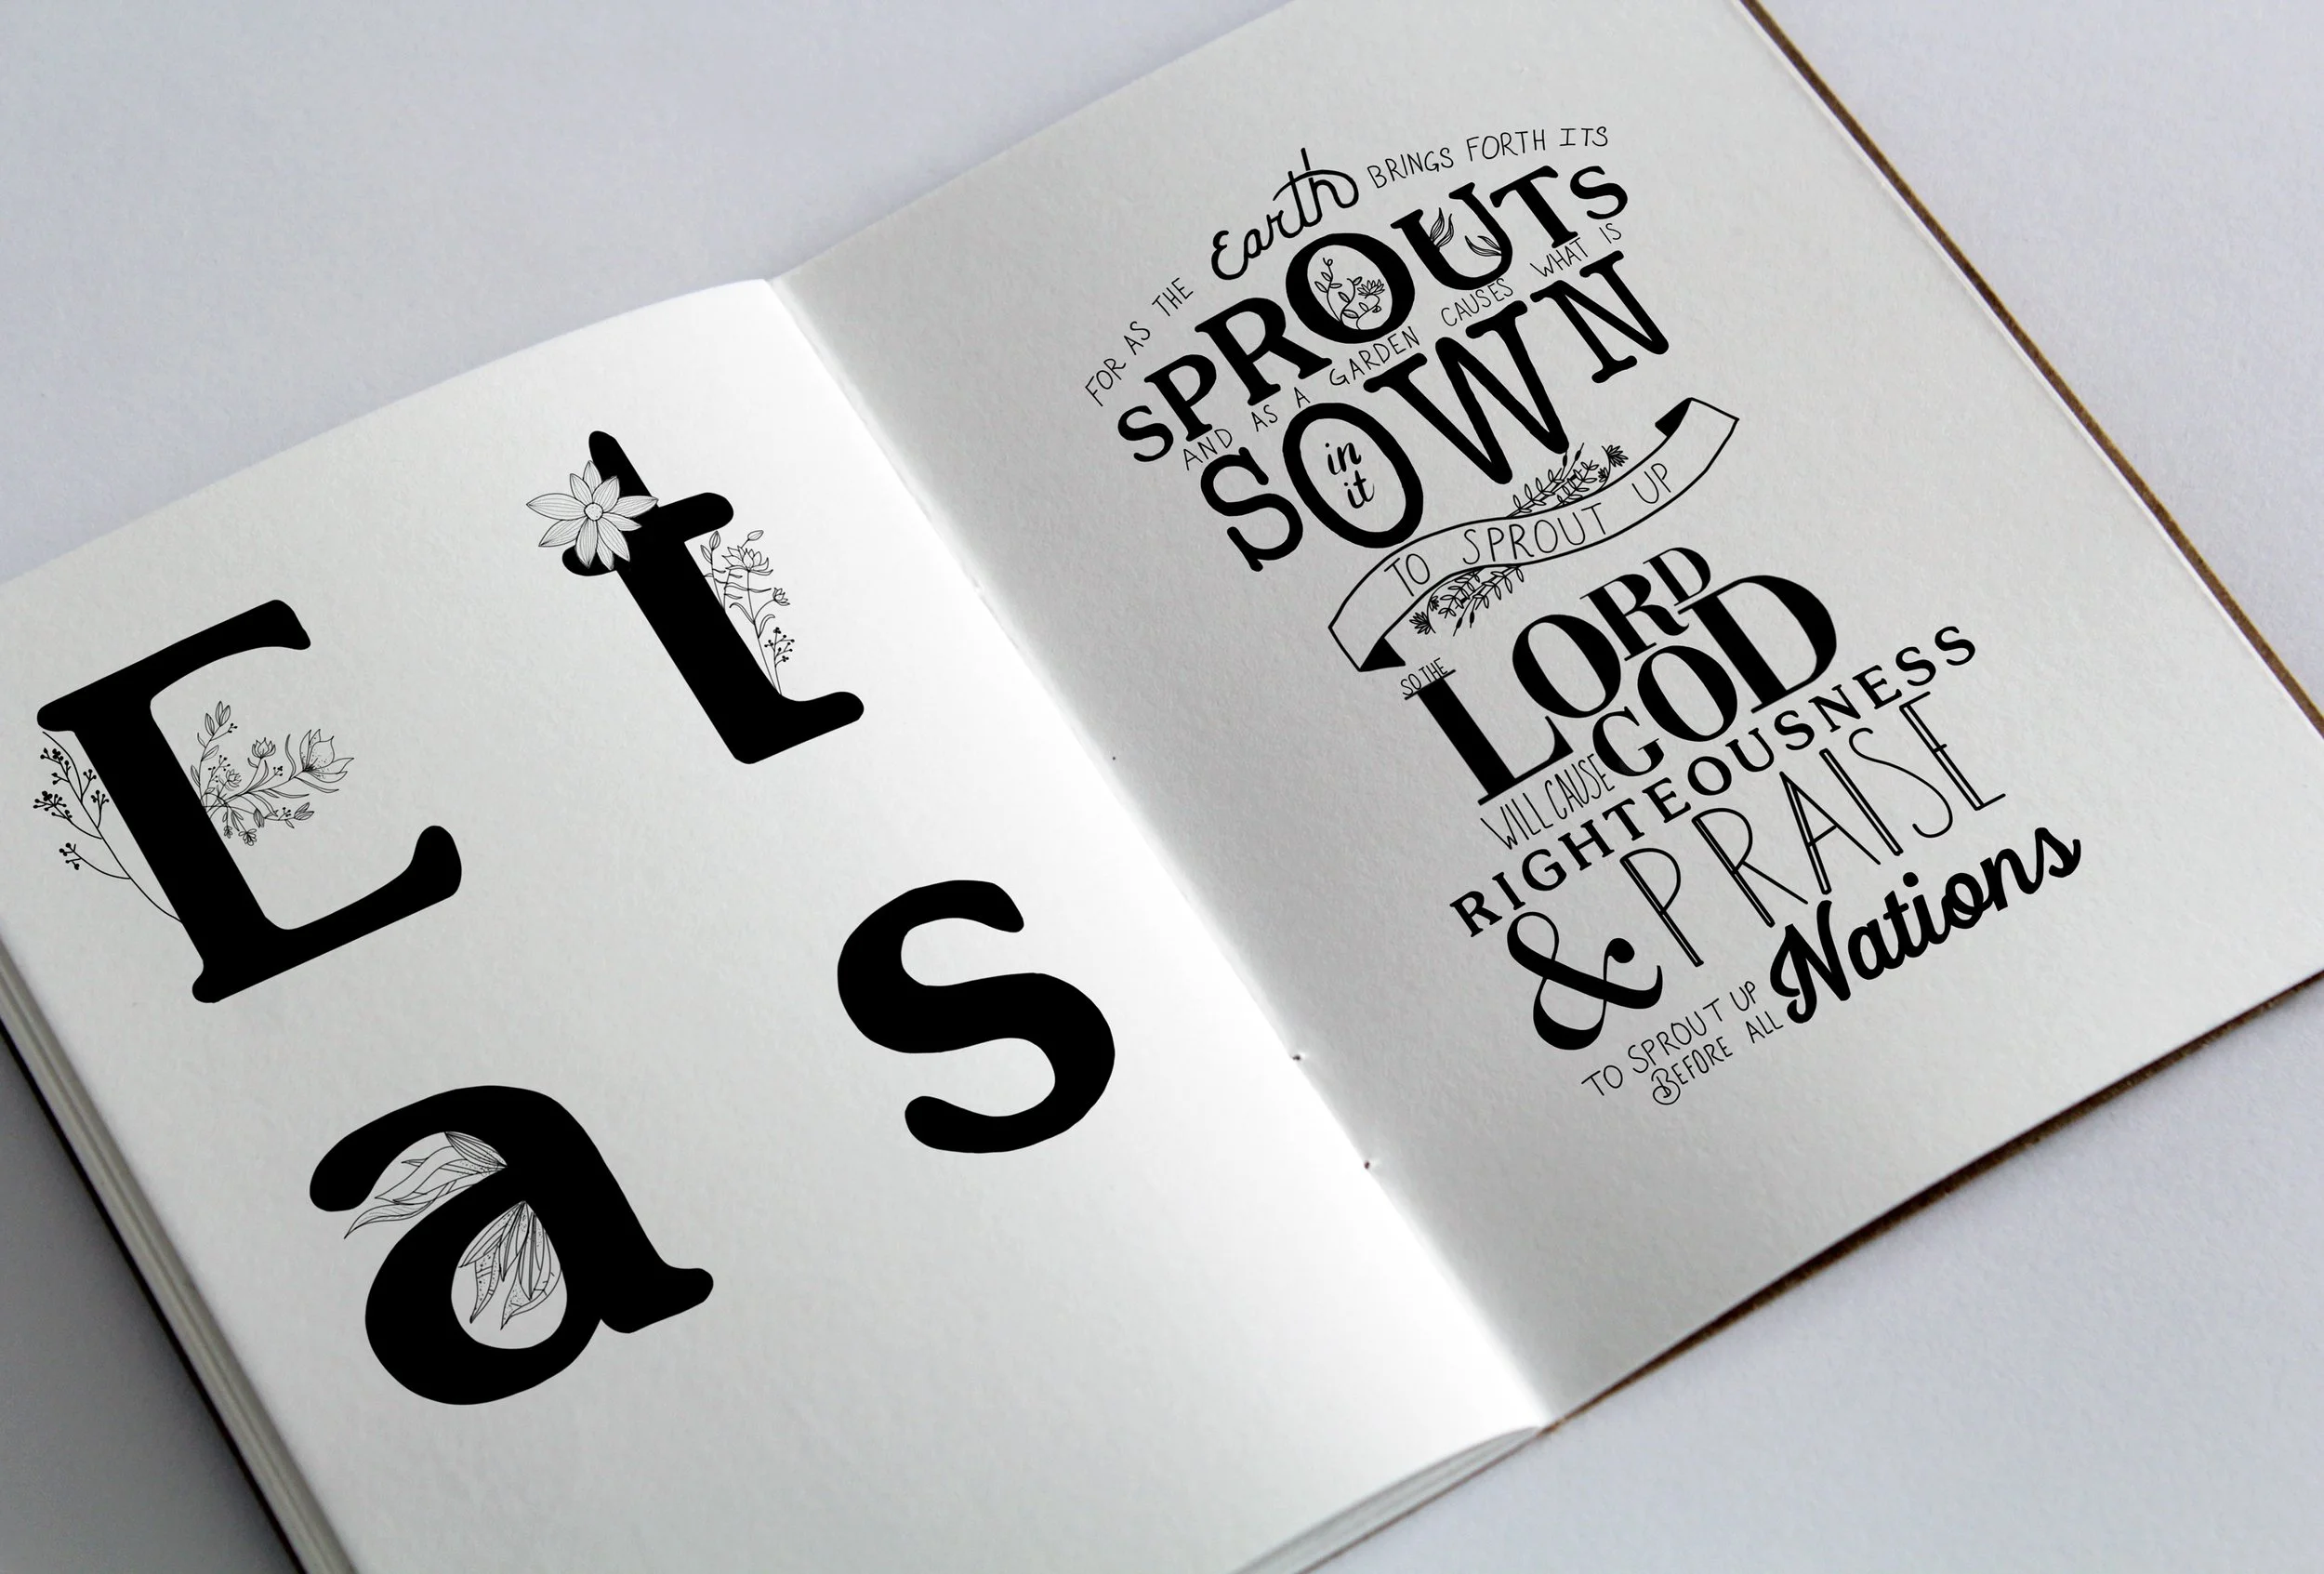 E t
a s
FOR AS THE Earth BRINGS FORTH ITS
SPROUTS
AND AS A GARDEN CAUSES WHAT IS
SOWN
in
it
TO SPROUT UP
SO THE
LORD
GOD
WILL CAUSE
RIGHTEOUSNESS
& PRAISE
TO SPROUT UP
BEFORE ALL Nations